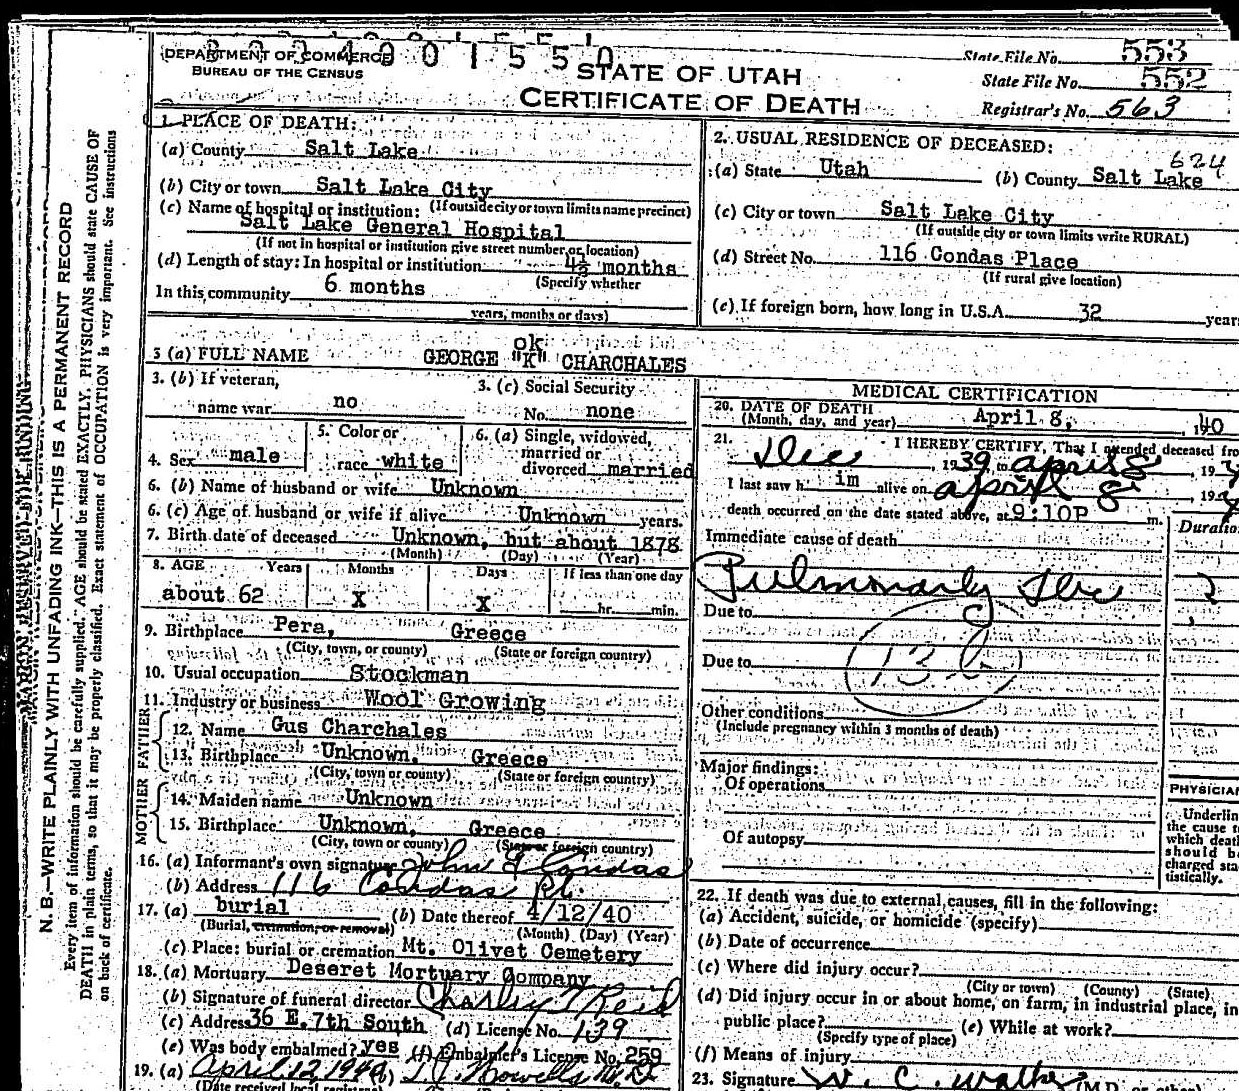 DEPARTMENT OF COMMERCE
BUREAU OF THE CENSUS
4 0 0 1 5 5 0
STATE OF UTAH
CERTIFICATE OF DEATH
State File No. 553
State File No. 552
Registrar's No. 563
MARGIN RESERVED FOR BINDING
N. B.—WRITE PLAINLY WITH UNFADING INK—THIS IS A PERMANENT RECORD
Every item of information should be carefully supplied. AGE should be stated EXACTLY. PHYSICIANS should state CAUSE OF
DEATH in plain terms, so that it may be properly classified. Exact statement of OCCUPATION is very important. See instructions
on back of certificate.
1. PLACE OF DEATH:
(a) County Salt Lake
(b) City or town Salt Lake City
(If outside city or town limits name precinct)
(c) Name of hospital or institution:
Salt Lake General Hospital
(If not in hospital or institution give street number or location)
(d) Length of stay: In hospital or institution 4½ months
(Specify whether
In this community 6 months
years, months or days)
2. USUAL RESIDENCE OF DECEASED:
624
(a) State Utah (b) County Salt Lake
(c) City or town Salt Lake City
(If outside city or town limits write RURAL)
(d) Street No. 116 Condas Place
(If rural give location)
(e) If foreign born, how long in U.S.A. 32 years
ok
3 (a) FULL NAME GEORGE "K" CHARCHALES
3. (b) If veteran,
name war no
3. (c) Social Security
No. none
4. Sex male
5. Color or
race white
6. (a) Single, widowed,
married or
divorced married
6. (b) Name of husband or wife Unknown
6. (c) Age of husband or wife if alive Unknown years.
7. Birth date of deceased Unknown, but about 1878
(Month) (Day) (Year)
8. AGE Years Months Days If less than one day
about 62 X X hr. min.
9. Birthplace Pera, Greece
(City, town, or county) (State or foreign country)
10. Usual occupation Stockman
11. Industry or business Wool Growing
FATHER
12. Name Gus Charchales
13. Birthplace Unknown, Greece
(City, town or county) (State or foreign country)
MOTHER
14. Maiden name Unknown
15. Birthplace Unknown, Greece
(City, town or county) (State or foreign country)
16. (a) Informant's own signature John G Condas
(b) Address 116 Condas Pl.
17. (a) burial (b) Date thereof 4/12/40
(Burial, cremation, or removal) (Month) (Day) (Year)
(c) Place: burial or cremation Mt. Olivet Cemetery
18. (a) Mortuary Deseret Mortuary Company
(b) Signature of funeral director Charley T Reid
(c) Address 36 E. 7th South (d) License No. 139
(e) Was body embalmed? yes (f) Embalmer's License No. 259
19. (a) April 12 1940 (b)
(Date received local registrar)
MEDICAL CERTIFICATION
20. DATE OF DEATH
(Month, day, and year) April 8, 40
21. I HEREBY CERTIFY, That I attended deceased from
Dec 1939 to april 8 19
I last saw h im alive on april 8 19
death occurred on the date stated above, at 9:10P m.
Duration
Immediate cause of death
Pulmonary Tbc 2
Due to
Due to
13 b
Other conditions
(Include pregnancy within 3 months of death)
Major findings:
Of operations
Of autopsy
PHYSICIAN
Underline
the cause to
which death
should be
charged sta-
tistically.
22. If death was due to external causes, fill in the following:
(a) Accident, suicide, or homicide (specify)
(b) Date of occurrence
(c) Where did injury occur?
(City or town) (County) (State)
(d) Did injury occur in or about home, on farm, in industrial place, in
public place? (e) While at work?
(Specify type of place)
(f) Means of injury
23. Signature W. C. Walker (M.D. or other)